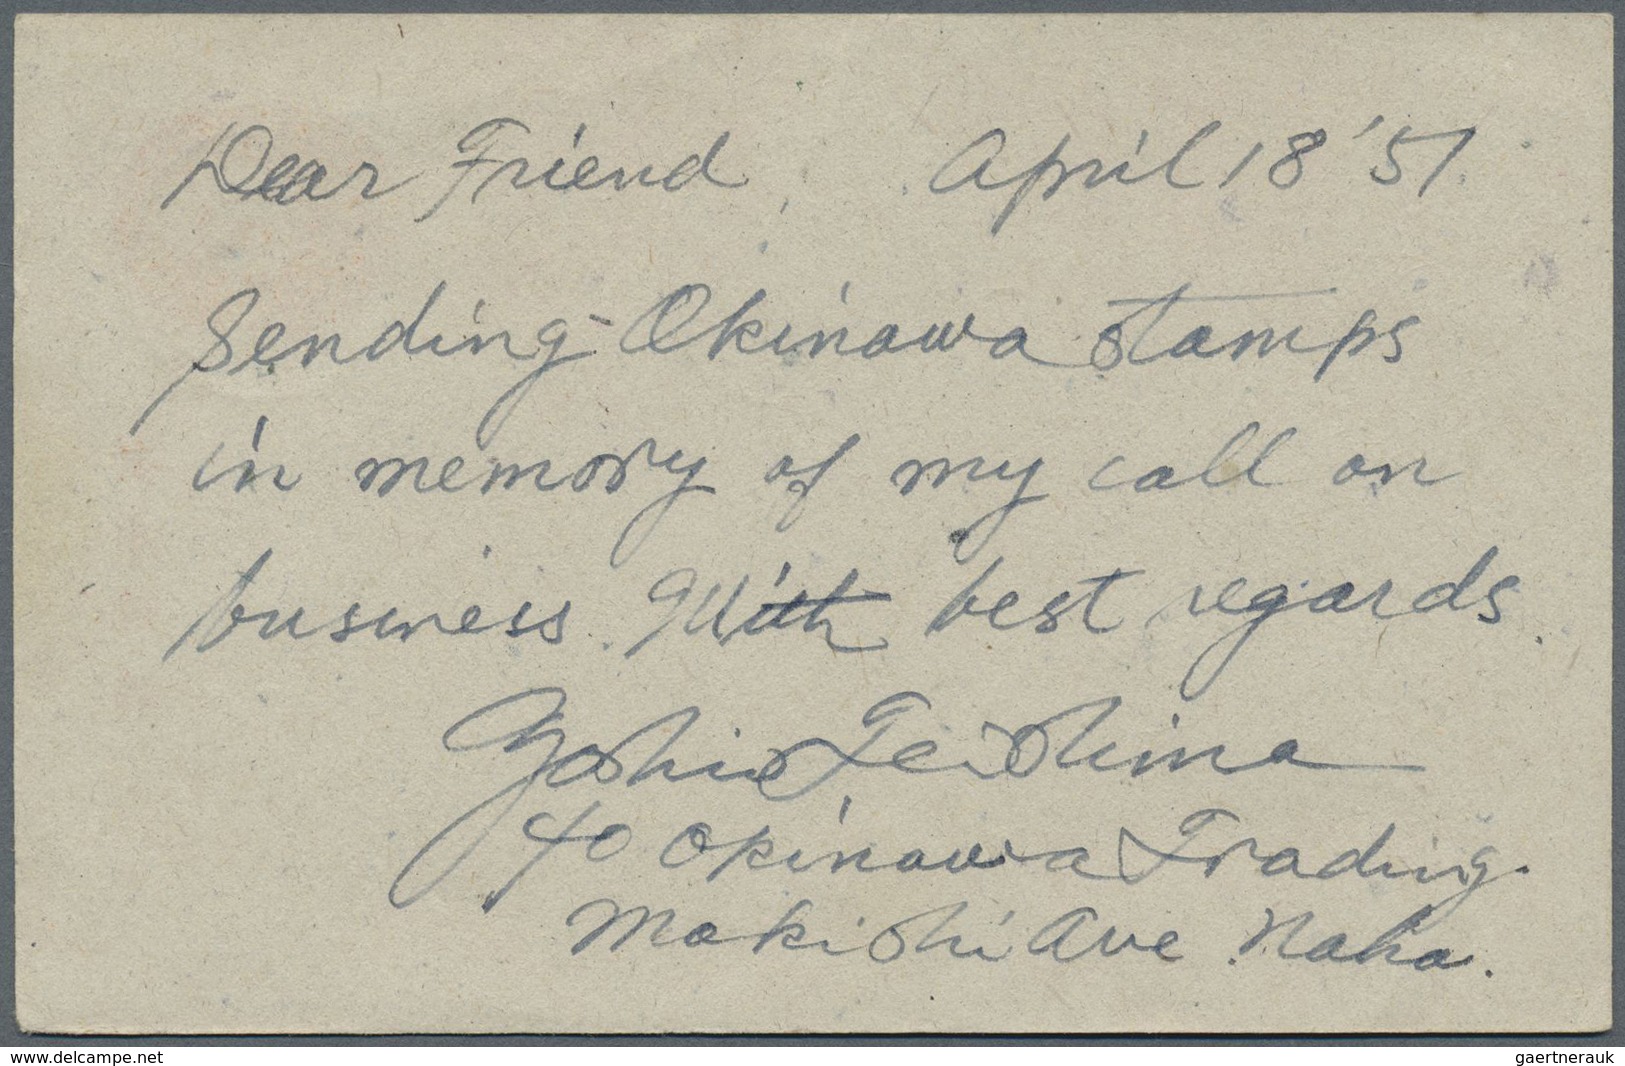 Dear Friend, April 18 '51.
Sending Okinawa stamps
in memory of my call on
business. With best regards.
Yoshio Teishima
c/o Okinawa Trading.
Makishi Ave. Naha.
www.delcampe.net
gaertnerauk